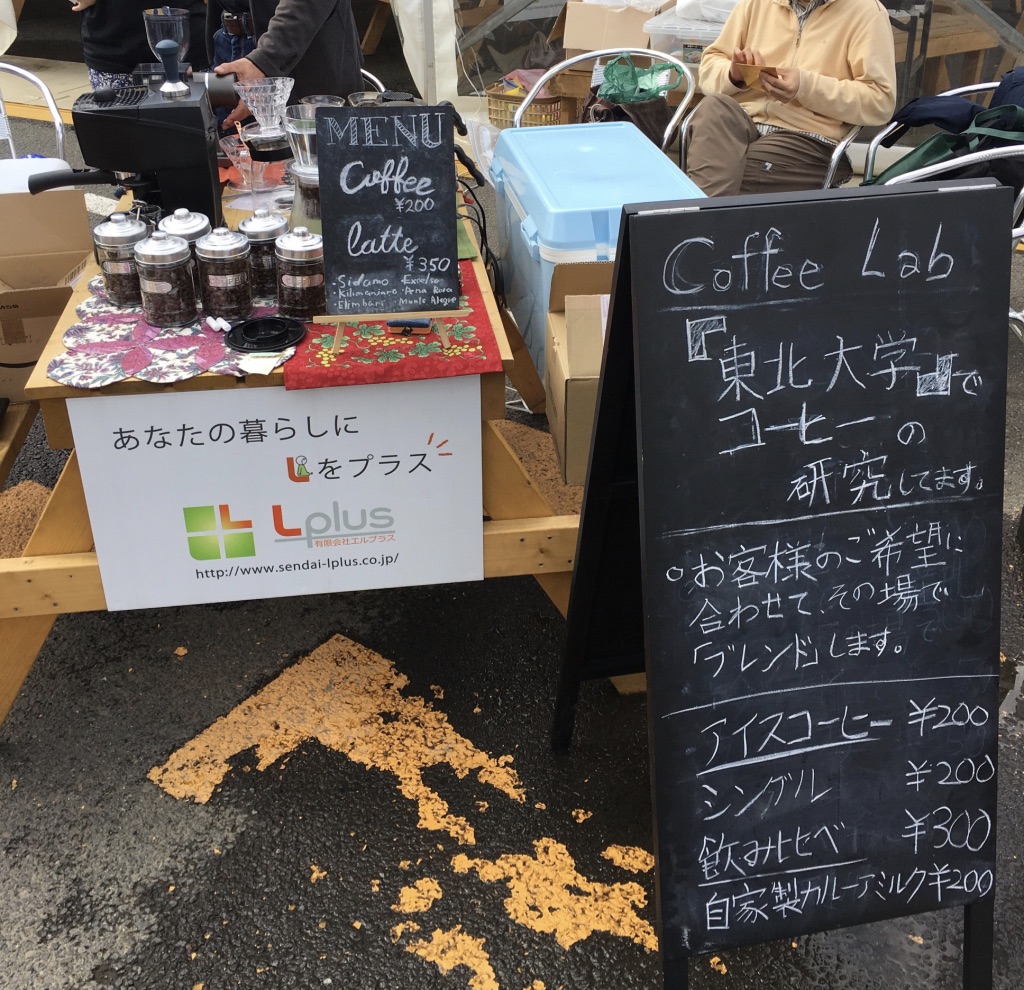 MENU
Coffee
¥200
latte
¥350
・Sidamo ・Excelso
・Kilimanjaro ・Pena Roxa
・Elimbari ・Monte Alegre
あなたの暮らしに
Lをプラス
Lplus
有限会社エルプラス
http://www.sendai-lplus.co.jp/
Coffee Lab
『東北大学』で
コーヒーの
研究してます。
○お客様のご希望に
合わせて、その場で
「ブレンド」します。
アイスコーヒー ¥200
シングル ¥200
飲み比べ ¥300
自家製カルーアミルク¥200